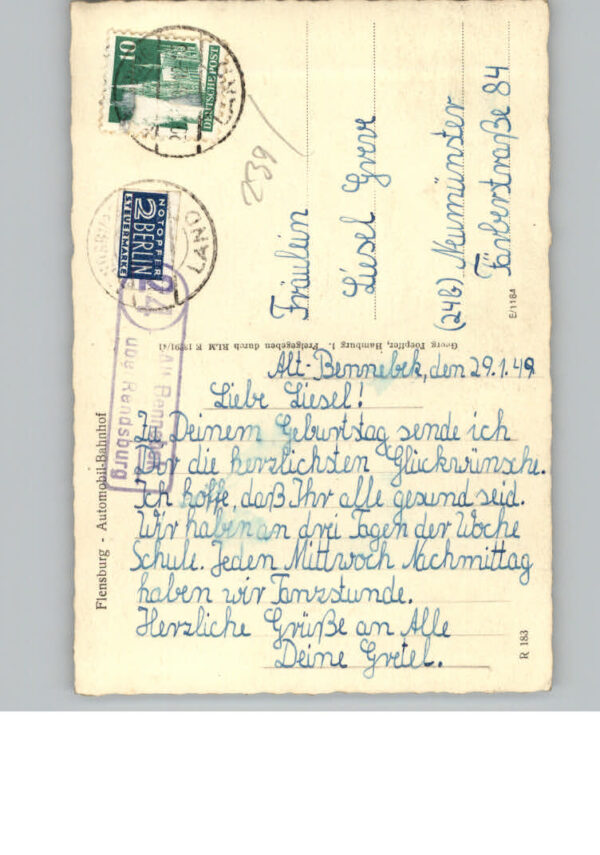 Alt-Bennebek, den 29.1.49
Liebe Liesel!
Zu Deinem Geburtstag sende ich
Dir die herzlichsten Glückwünsche.
Ich hoffe, daß Ihr alle gesund seid.
Wir haben an drei Tagen der Woche
Schule. Jeden Mittwoch Nachmittag
haben wir Tanzstunde.
Herzliche Grüße an Alle
Deine Gretel.
Fräulein
Liesel Greve
(24b) Neumünster
Färberstraße 84
239
10
DEUTSCHE POST
NOTOPFER
2 BERLIN
STEUERMARKE
24
Alt Bennebek
über Rendsburg
Flensburg - Automobil-Bahnhof
Georg Toepffer, Hamburg 1. Freigegeben durch RLM
E/1164
R 183